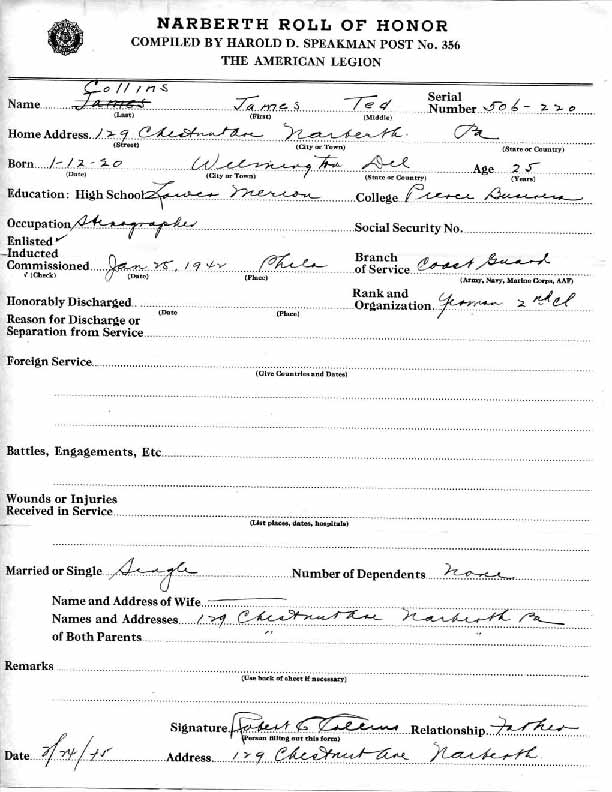 NARBERTH ROLL OF HONOR
COMPILED BY HAROLD D. SPEAKMAN POST No. 356
THE AMERICAN LEGION
Collins
Name James James Ted Serial Number 506-220
(Last) (First) (Middle)
Home Address 129 Chestnut Ave Narberth Pa
(Street) (City or Town) (State or Country)
Born 1-12-20 Wilmington Del Age 25
(Date) (City or Town) (State or Country) (Years)
Education: High School Lower Merion College Pierce Business
Occupation Stenographer Social Security No.
Enlisted ✓
Inducted
Commissioned Jan 25, 1942 Phila Branch of Service Coast Guard
√ (Check) (Date) (Place) (Army, Navy, Marine Corps, AAF)
Honorably Discharged Rank and Organization Yeoman 2nd Cl
(Date (Place)
Reason for Discharge or
Separation from Service
Foreign Service
(Give Countries and Dates)
Battles, Engagements, Etc
Wounds or Injuries
Received in Service
(List places, dates, hospitals)
Married or Single Single Number of Dependents None
Name and Address of Wife
Names and Addresses 129 Chestnut Ave Narberth Pa
of Both Parents " "
Remarks
(Use back of sheet if necessary)
Signature Robert C Collins Relationship Father
(Person filling out this form)
Date Address 129 Chestnut Ave Narberth